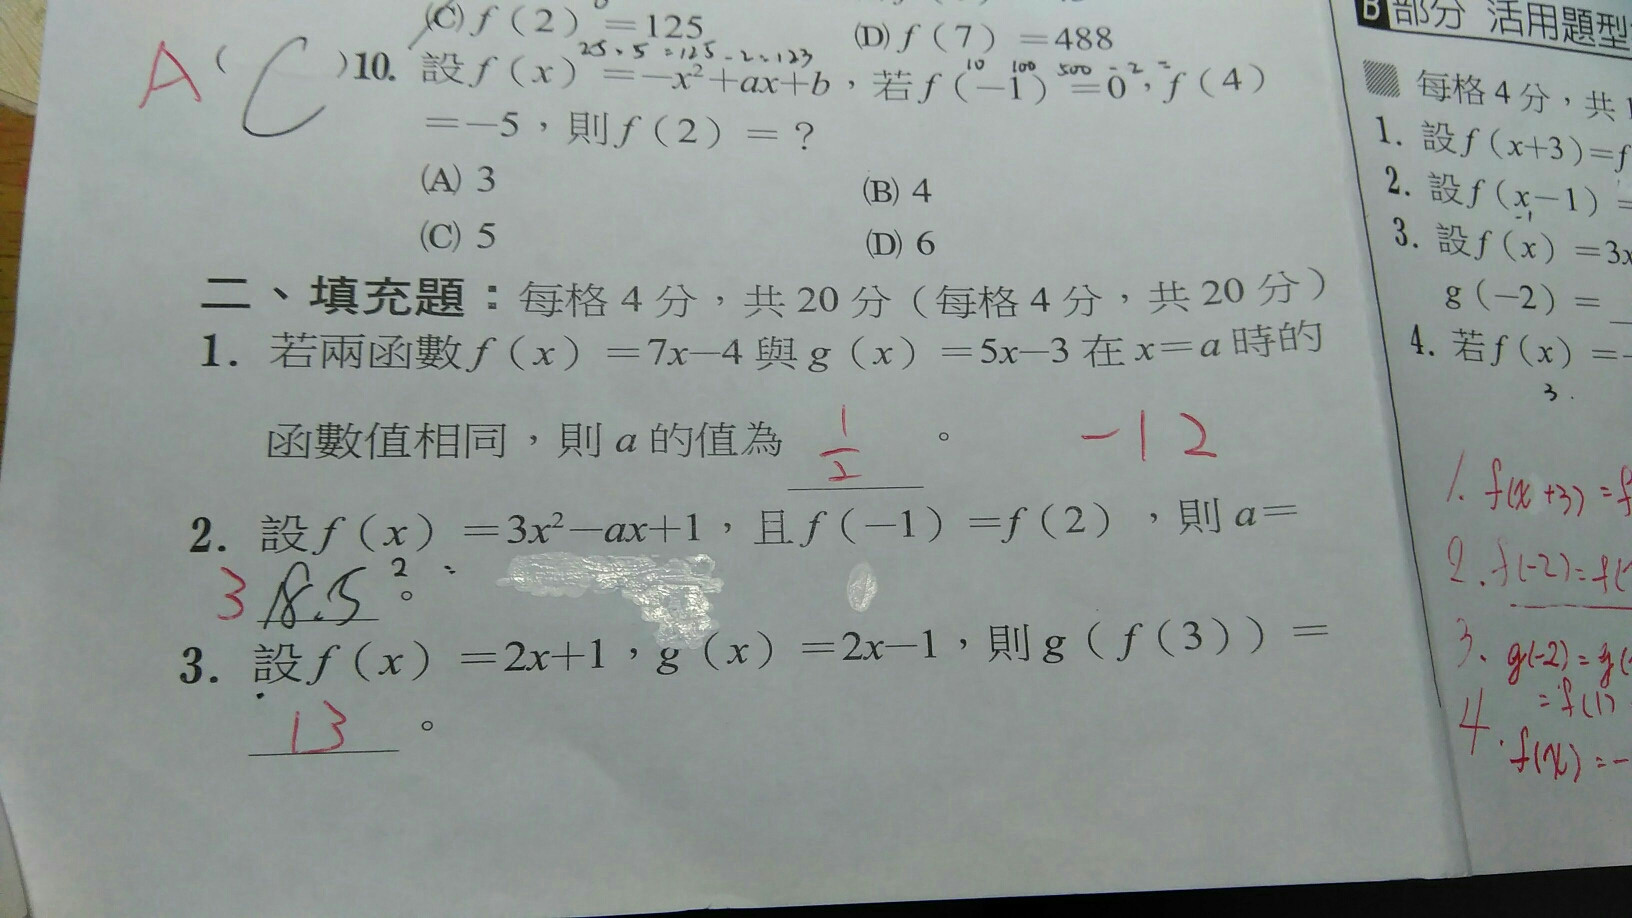 (C) f(2)=125
(D) f(7)=488
25.5=125-2=123
10 100 500 -2 =
A ( C )10. 設f(x)=−x²+ax+b,若f(−1)=0,f(4)
=−5,則f(2)=?
(A) 3
(B) 4
(C) 5
(D) 6
二、填充題:每格4分,共20分(每格4分,共20分)
1. 若兩函數f(x)=7x−4與g(x)=5x−3在x=a時的
函數值相同,則a的值為 1/2 。 -12
2. 設f(x)=3x²−ax+1,且f(−1)=f(2),則a=
3 8.5 。
2
3. 設f(x)=2x+1,g(x)=2x−1,則g(f(3))=
13 。
B 部分 活用題型
每格4分,共1
1. 設f(x+3)=f
2. 設f(x−1)=
-1
3. 設f(x)=3x
g(−2)=
4. 若f(x)=−
3.
1. f(x+3)=f
2. f(-2)=f(
3. g(-2)=g(
=f(1)
4. f(x)=-